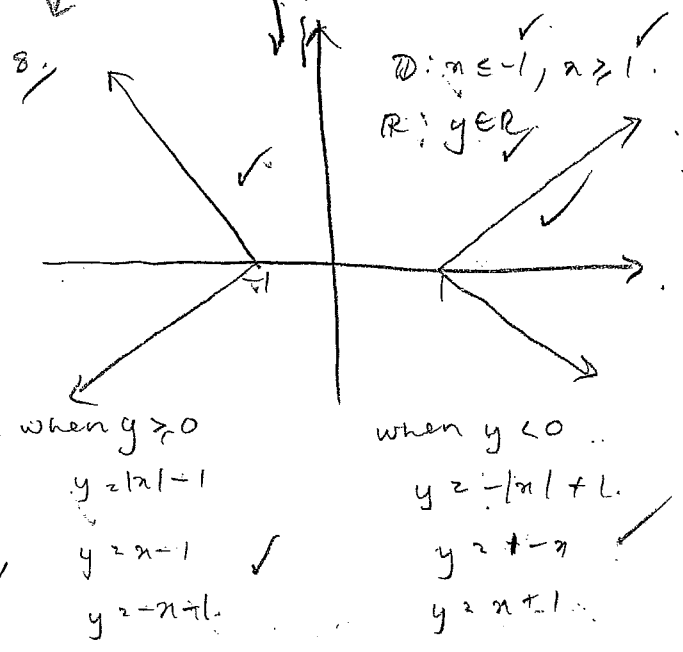 8.
D: x ≤ -1, x ≥ 1.
R: y ∈ R
-1
1
when y ≥ 0
y = |x| - 1
y = x - 1
y = -x - 1.
when y < 0
y = -|x| + 1.
y = 1 - x
y = x + 1